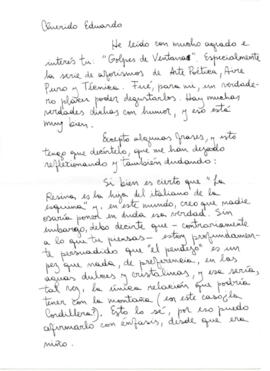 Querido Eduardo
He leído con mucho agrado e
interés tu: "Golpes de Ventana". Especialmente
la serie de aforismos de Arte Poética, Aire
Puro y Técnica. Fué, para mi, un verdade-
ro placer poder degustarlos. Hay muchas
verdades dichas con humor, y eso está
muy bien.
Excepto algunas frases, y esto
tengo que decírtelo, que me han dejado
reflexionando y también dudando:
Si bien es cierto que "La
Resina es la hija del italiano de la
esquina" y, en este mundo, creo que nadie
osaría poner en duda esa verdad. Sin
embargo, debo decirte que - contrariamente
a lo que tu piensas - estoy profundamen-
te persuadido que "el pendejo" es un
pez que nada, de preferencia, en las
aguas dulces y cristalinas, y esa sería,
tal vez, la única relación que podría
tener con la montaña (en este caso ¿la
Cordillera?). Esto lo sé, por eso puedo
afirmarlo con énfasis, desde que era
niño.